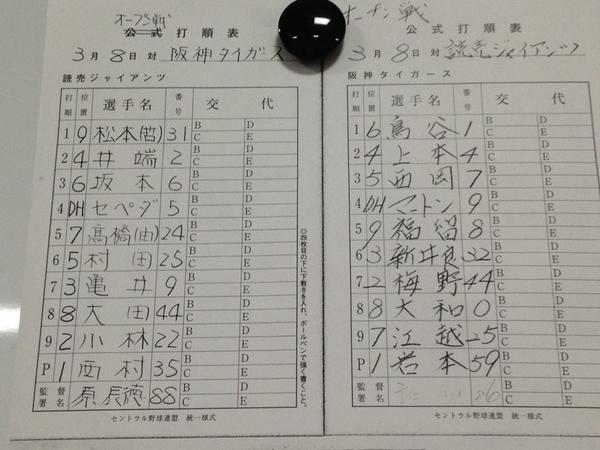 オープン戦
公式打順表
3月8日対 阪神タイガース
読売ジャイアンツ
打順 位置 選手名 番号 交代
1 9 松本(哲) 31 B C D E
2 4 井端 2 B C D E
3 6 坂本 6 B C D E
4 DH セペダ 5 B C D E
5 7 高橋(由) 24 B C D E
6 5 村田 25 B C D E
7 3 亀井 9 B C D E
8 8 大田 44 B C D E
9 2 小林 22 B C D E
P 1 西村 35 B C D E
監督署名 原辰徳 88 B C D E
セントラル野球連盟 統一様式
◎四枚目の下に下敷きを入れ、ボールペンで強く書くこと。
オープン戦
公式打順表
3月8日対 読売ジャイアンツ
阪神タイガース
打順 位置 選手名 番号 交代
1 6 鳥谷 1 B C D E
2 4 上本 4 B C D E
3 5 西岡 7 B C D E
4 DH マートン 9 B C D E
5 9 福留 8 B C D E
6 3 新井良 32 B C D E
7 2 梅野 44 B C D E
8 8 大和 0 B C D E
9 7 江越 25 B C D E
P 1 岩本 59 B C D E
監督署名 86 B C D E
セントラル野球連盟 統一様式